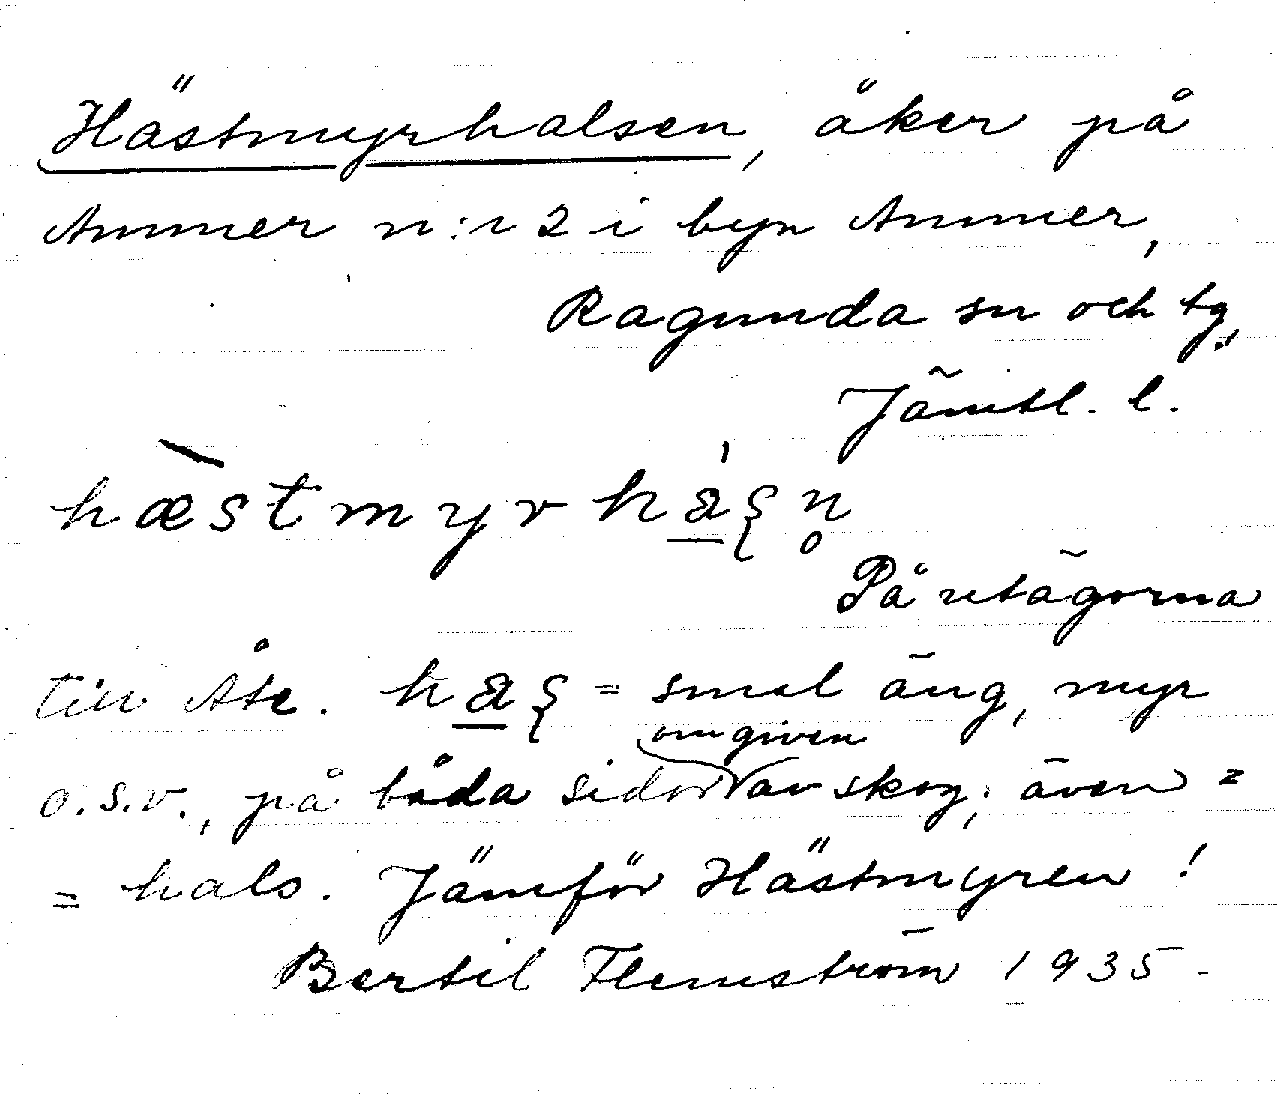 Hästmyrhalsen, åker på
Ammer n:r 2 i byn Ammer,
Ragunda sn och tg,
Jämtl. l.
hæ̀stmyrhá̱ʂn̥
På utägorna
till Åte. ha̱ʂ = smal äng, myr
o.s.v., på båda sidor omgiven av skog; även =
= hals. Jämför Hästmyren!
Bertil Flemström 1935-